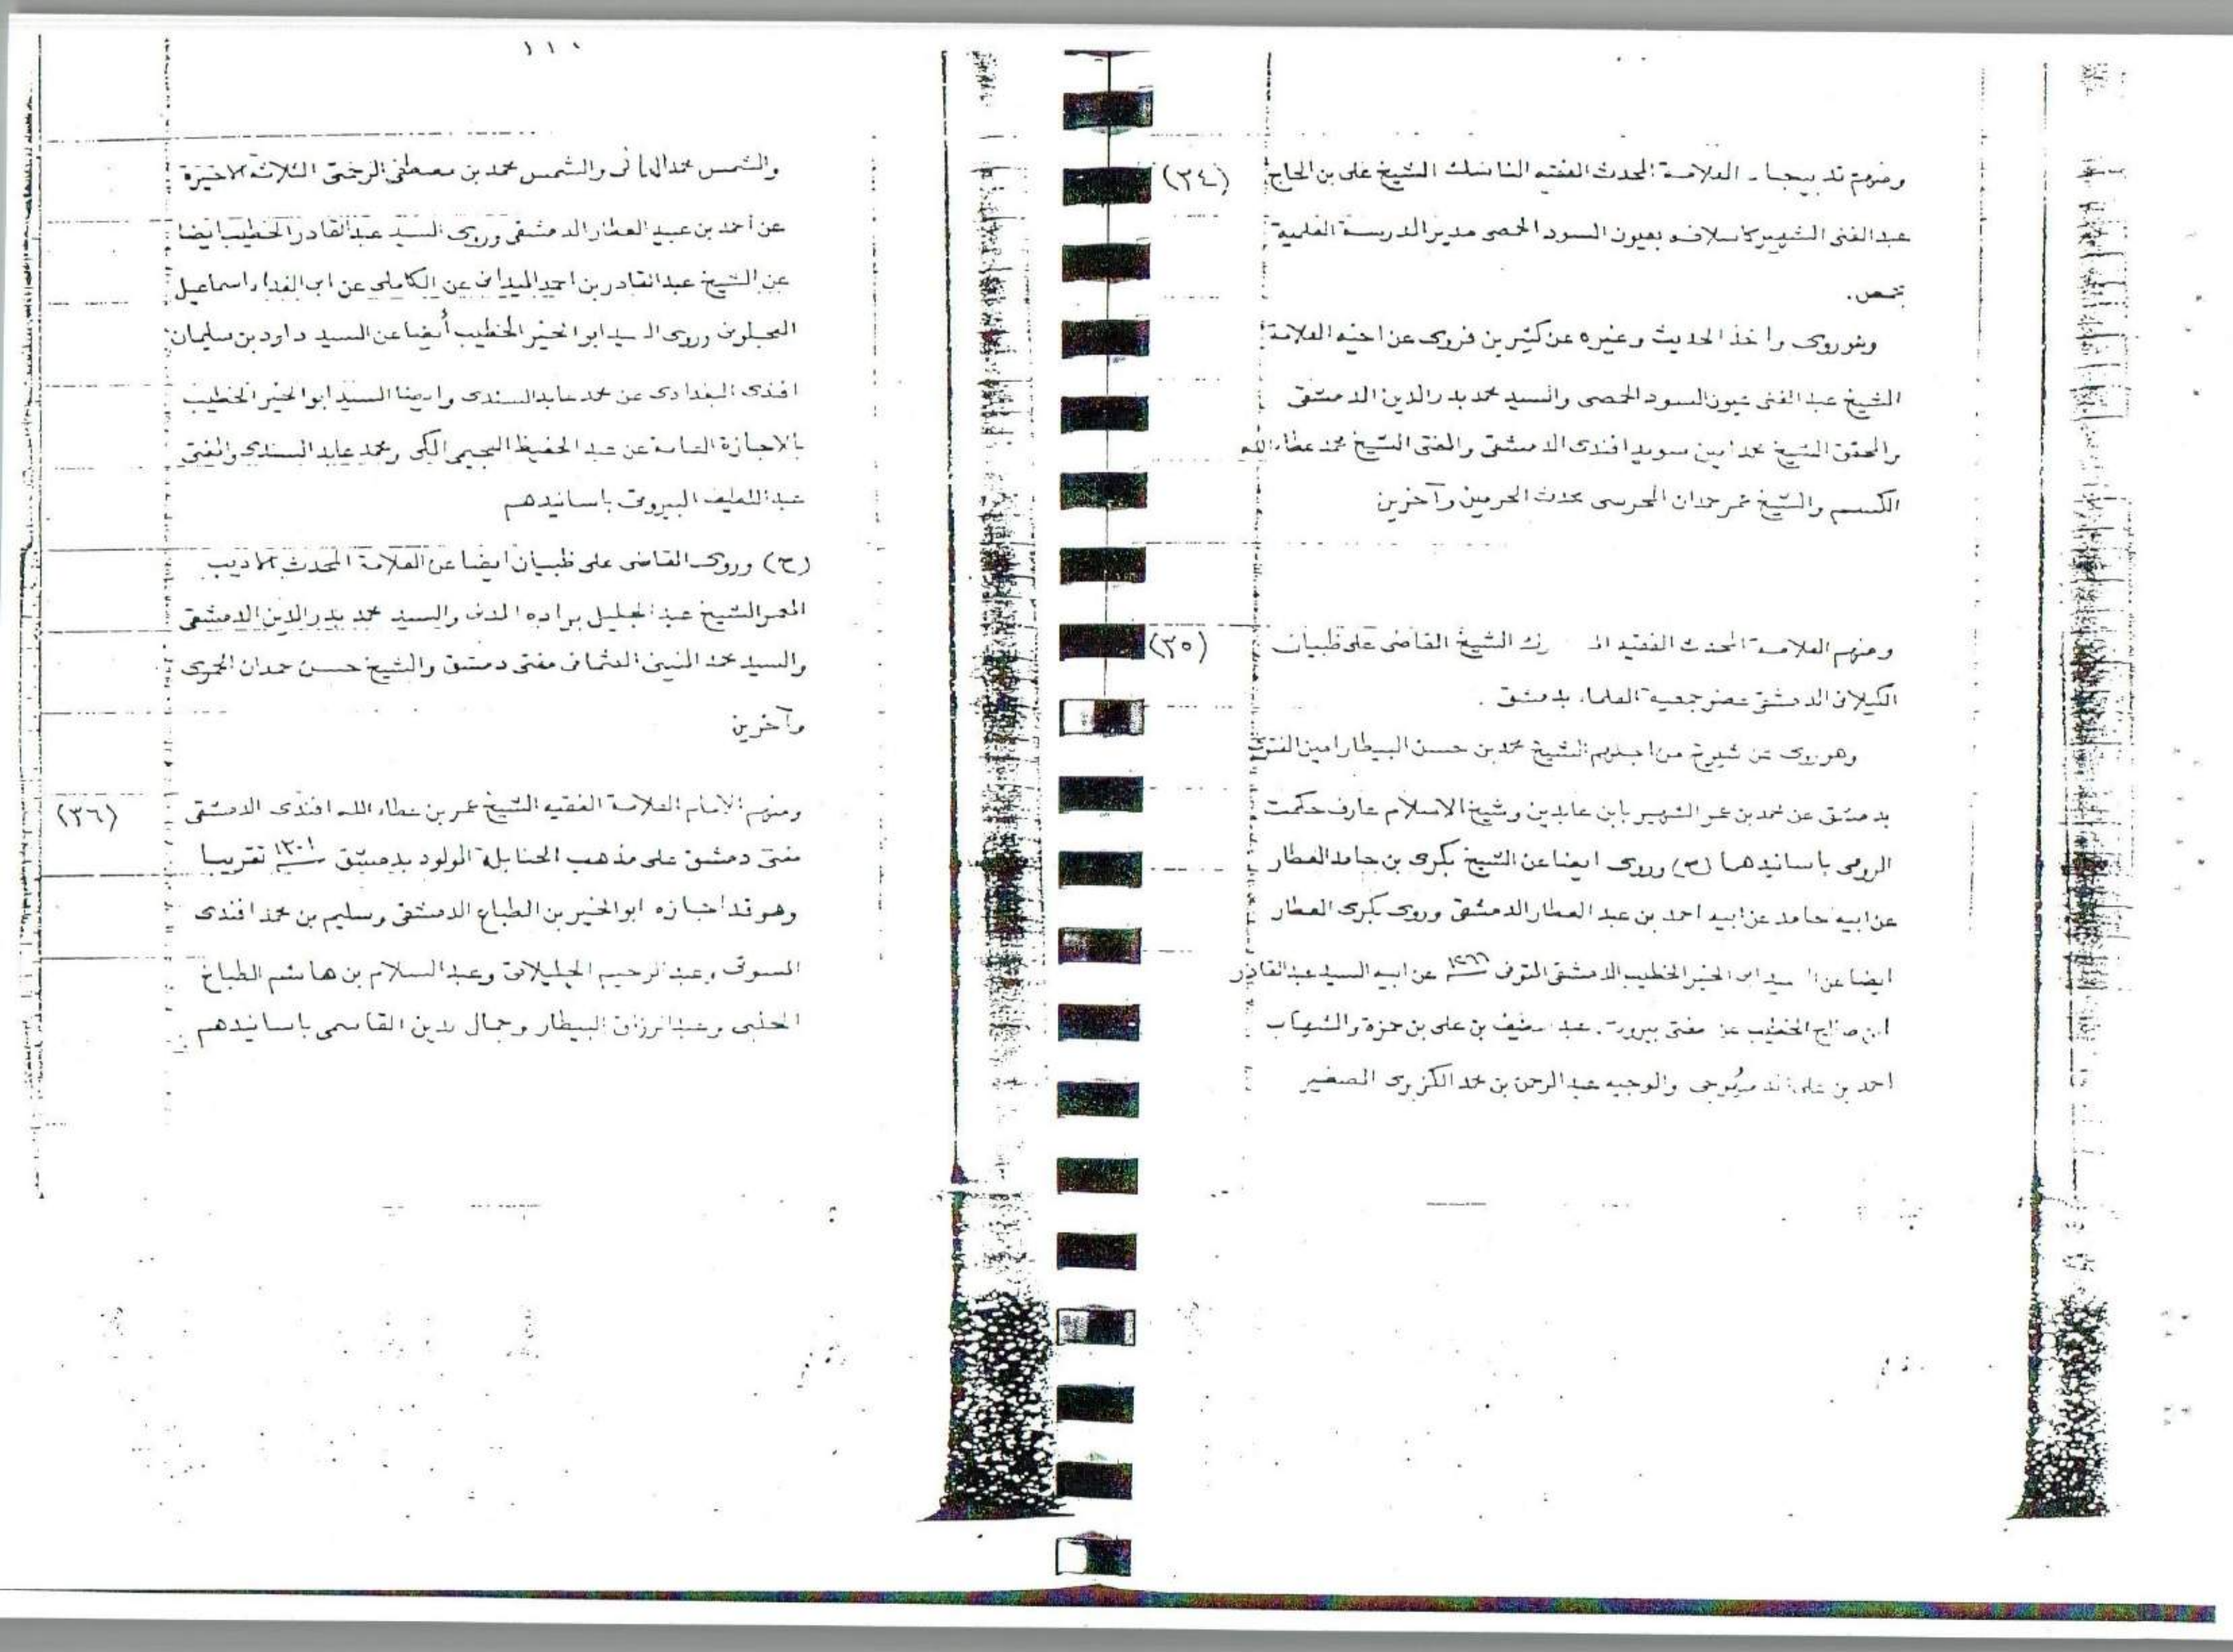 ومنهم تدبيجا العلامة المحدث الفقيه الناسك الشيخ على بن الحاج (٣٤)
عبد الغنى الشهير كاسلافه بعيون السود الحمصى مدير المدرسة العلمية
بحمص .
وهو روى واخذ الحديث وغيره عن كثيرين فروى عن اخيه العلامة
الشيخ عبد الغنى عيون السود الحمصى والسيد محمد بدر الدين الدمشقى
والمحقق الشيخ محمد امين سويد افندى الدمشقى والمفتى الشيخ محمد عطاء الله
الكسم والشيخ عمر حمدان المحرسى محدث الحرمين وآخرين
ومنهم العلامة المحدث الفقيه الشيخ القاضى على ظبيان (٣٥)
الكيلانى الدمشقى عضو جمعية العلماء بدمشق .
وهو روى عن شيوخ من اجلهم الشيخ محمد بن حسن البيطار امين الفتوى
بدمشق عن محمد بن عمر الشهير بابن عابدين وشيخ الاسلام عارف حكمت
الرومى باسانيدهما (ح) وروى ايضا عن الشيخ بكرى بن حامد العطار
عن ابيه حامد عن ابيه احمد بن عبد العطار الدمشقى وروى بكرى العطار
ايضا عن السيد ابى الخير الخطيب الدمشقى المتوفى عن ابيه السيد عبد القادر
ابن صالح الخطيب عن مفتى بيروت عبد اللطيف بن على بن حمزة والشهاب
احمد بن على الدمهوجى والوجيه عبد الرحمن بن محمد الكزبرى الصغير
١١٠
والشمس محمد والشمس محمد بن مصطفى الرحمتى الثلاثة الاخيرة
عن أحمد بن عبيد العطار الدمشقى وروى السيد عبد القادر الخطيب ايضا
عن الشيخ عبد القادر بن احمد الميدانى عن الكاملى عن ابى الفداء اسماعيل
العجلونى وروى السيد ابو الخير الخطيب أيضا عن السيد داود بن سليمان
افندى البغدادى عن محمد عابد السندى وايضا السيد ابو الخير الخطيب
بالاجازة العامة عن عبد الحفيظ العجيمى المكى ومحمد عابد السندى والمفتى
عبد اللطيف البيروتى باسانيدهم
(ح) وروى القاضى على ظبيان ايضا عن العلامة المحدث الاديب
المعمر الشيخ عبد الجليل براده المدنى والسيد محمد بدر الدين الدمشقى
والسيد محمد المنينى العثمانى مفتى دمشق والشيخ حسن حمدان الحموى
وآخرين
ومنهم الامام العلامة الفقيه الشيخ عمر بن عطاء الله افندى الدمشقى (٣٦)
مفتى دمشق على مذهب الحنابلة المولود بدمشق سنة ١٣٠١ تقريبا
وهو قد اجازه ابو الخير بن الطباع الدمشقى وسليم بن محمد افندى
المسوتى وعبد الرحيم الجيلانى وعبد السلام بن هاشم الطباخ
الحلبى وعبد الرزاق البيطار وجمال الدين القاسمى باسانيدهم